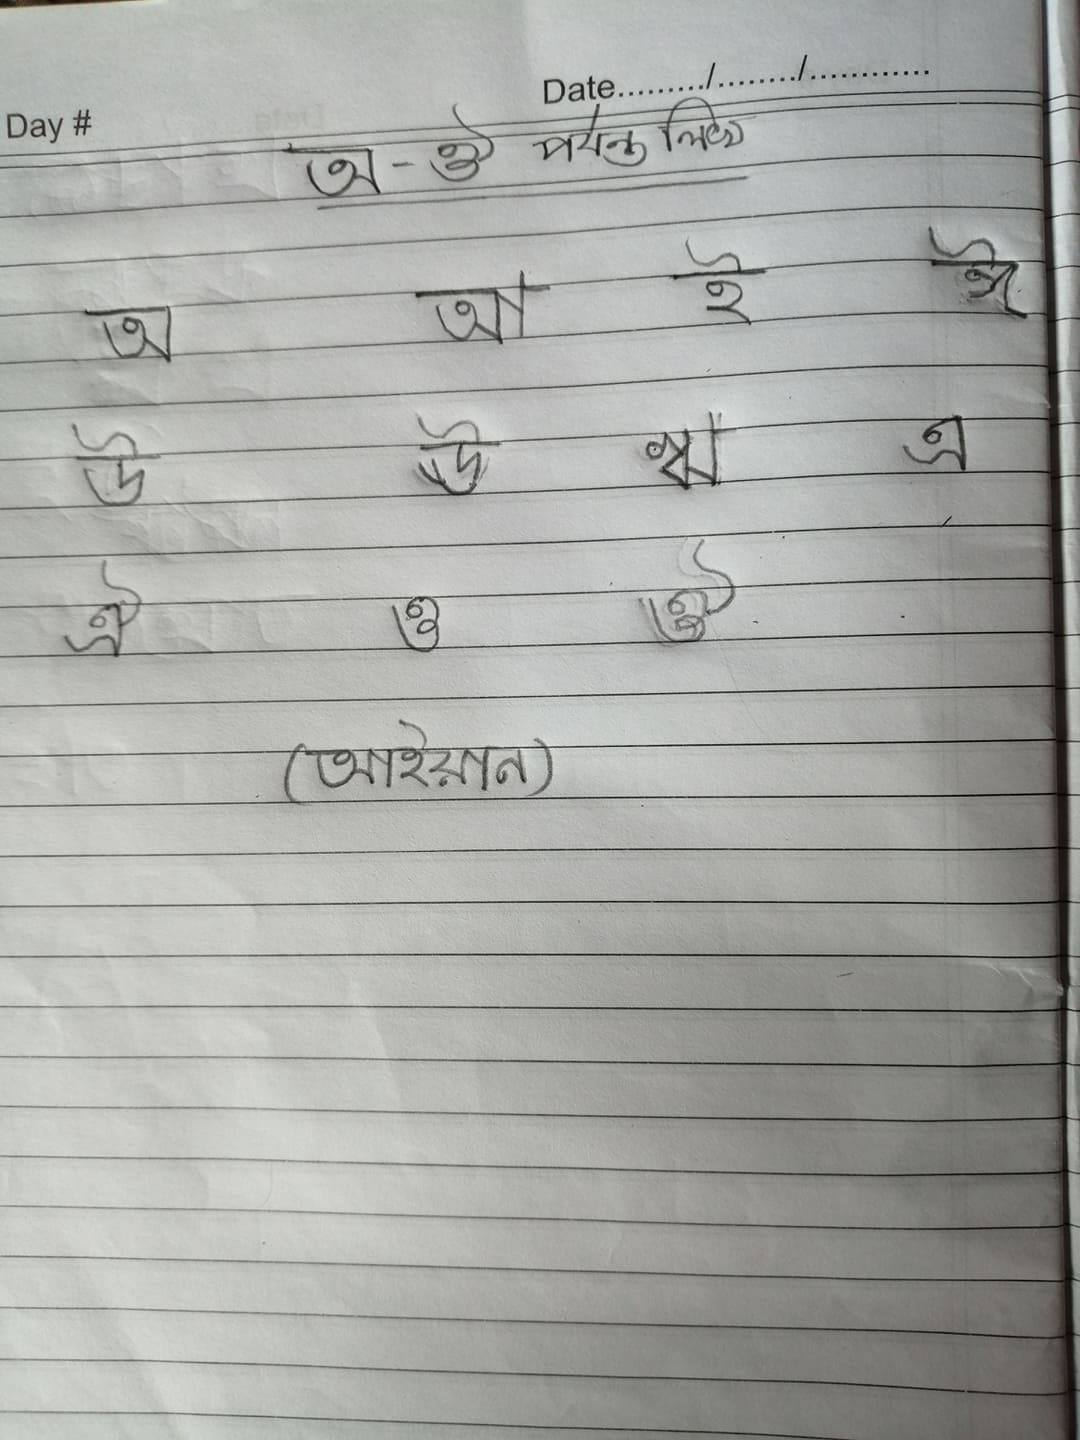 Date........./......../............
Day #
অ - ঔ পর্যন্ত লিখ
অ আ ই ঈ
উ ঊ ঋ এ
ঐ ও ঔ
(আইয়ান)